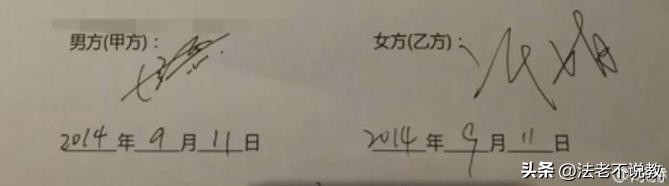 男方(甲方)： 女方(乙方)：
2014年9月11日 2014年9月11日
头条 @法老不说教